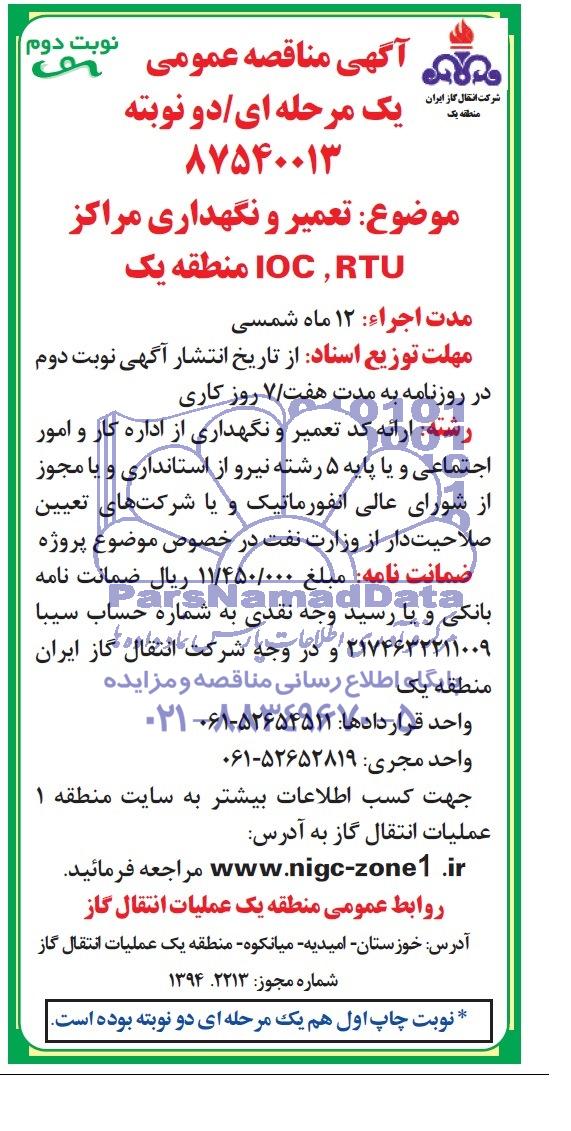 نوبت دوم
شرکت انتقال گاز ایران
منطقه یک
آگهی مناقصه عمومی
یک مرحله ای/دو نوبته
۸۷۵۴۰۰۱۳
موضوع: تعمیر و نگهداری مراکز
IOC , RTU منطقه یک
مدت اجراء: ۱۲ ماه شمسی
مهلت توزیع اسناد: از تاریخ انتشار آگهی نوبت دوم
در روزنامه به مدت هفت/۷ روز کاری
رشته: ارائه کد تعمیر و نگهداری از اداره کار و امور
اجتماعی و یا پایه ۵ رشته نیرو از استانداری و یا مجوز
از شورای عالی انفورماتیک و یا شرکت‌های تعیین
صلاحیت‌دار از وزارت نفت در خصوص موضوع پروژه
ضمانت نامه: مبلغ ۱۱/۴۵۰/۰۰۰ ریال ضمانت نامه
ParsNamadData
بانکی و یا رسید وجه نقدی به شماره حساب سیبا
۲۱۷۴۶۳۲۲۱۱۰۰۹ و در وجه شرکت انتقال گاز ایران
پایگاه اطلاع رسانی مناقصه و مزایده
منطقه یک
۰۲۱-۸۸۳۴۹۶۷۰-۵
واحد قراردادها: ۵۲۶۵۴۵۱۱-۰۶۱
واحد مجری: ۵۲۶۵۲۸۱۹-۰۶۱
جهت کسب اطلاعات بیشتر به سایت منطقه ۱
عملیات انتقال گاز به آدرس:
www.nigc-zone1 .ir مراجعه فرمائید.
روابط عمومی منطقه یک عملیات انتقال گاز
آدرس: خوزستان- امیدیه- میانکوه- منطقه یک عملیات انتقال گاز
شماره مجوز: ۲۲۱۳. ۱۳۹۴
* نوبت چاپ اول هم یک مرحله ای دو نوبته بوده است.